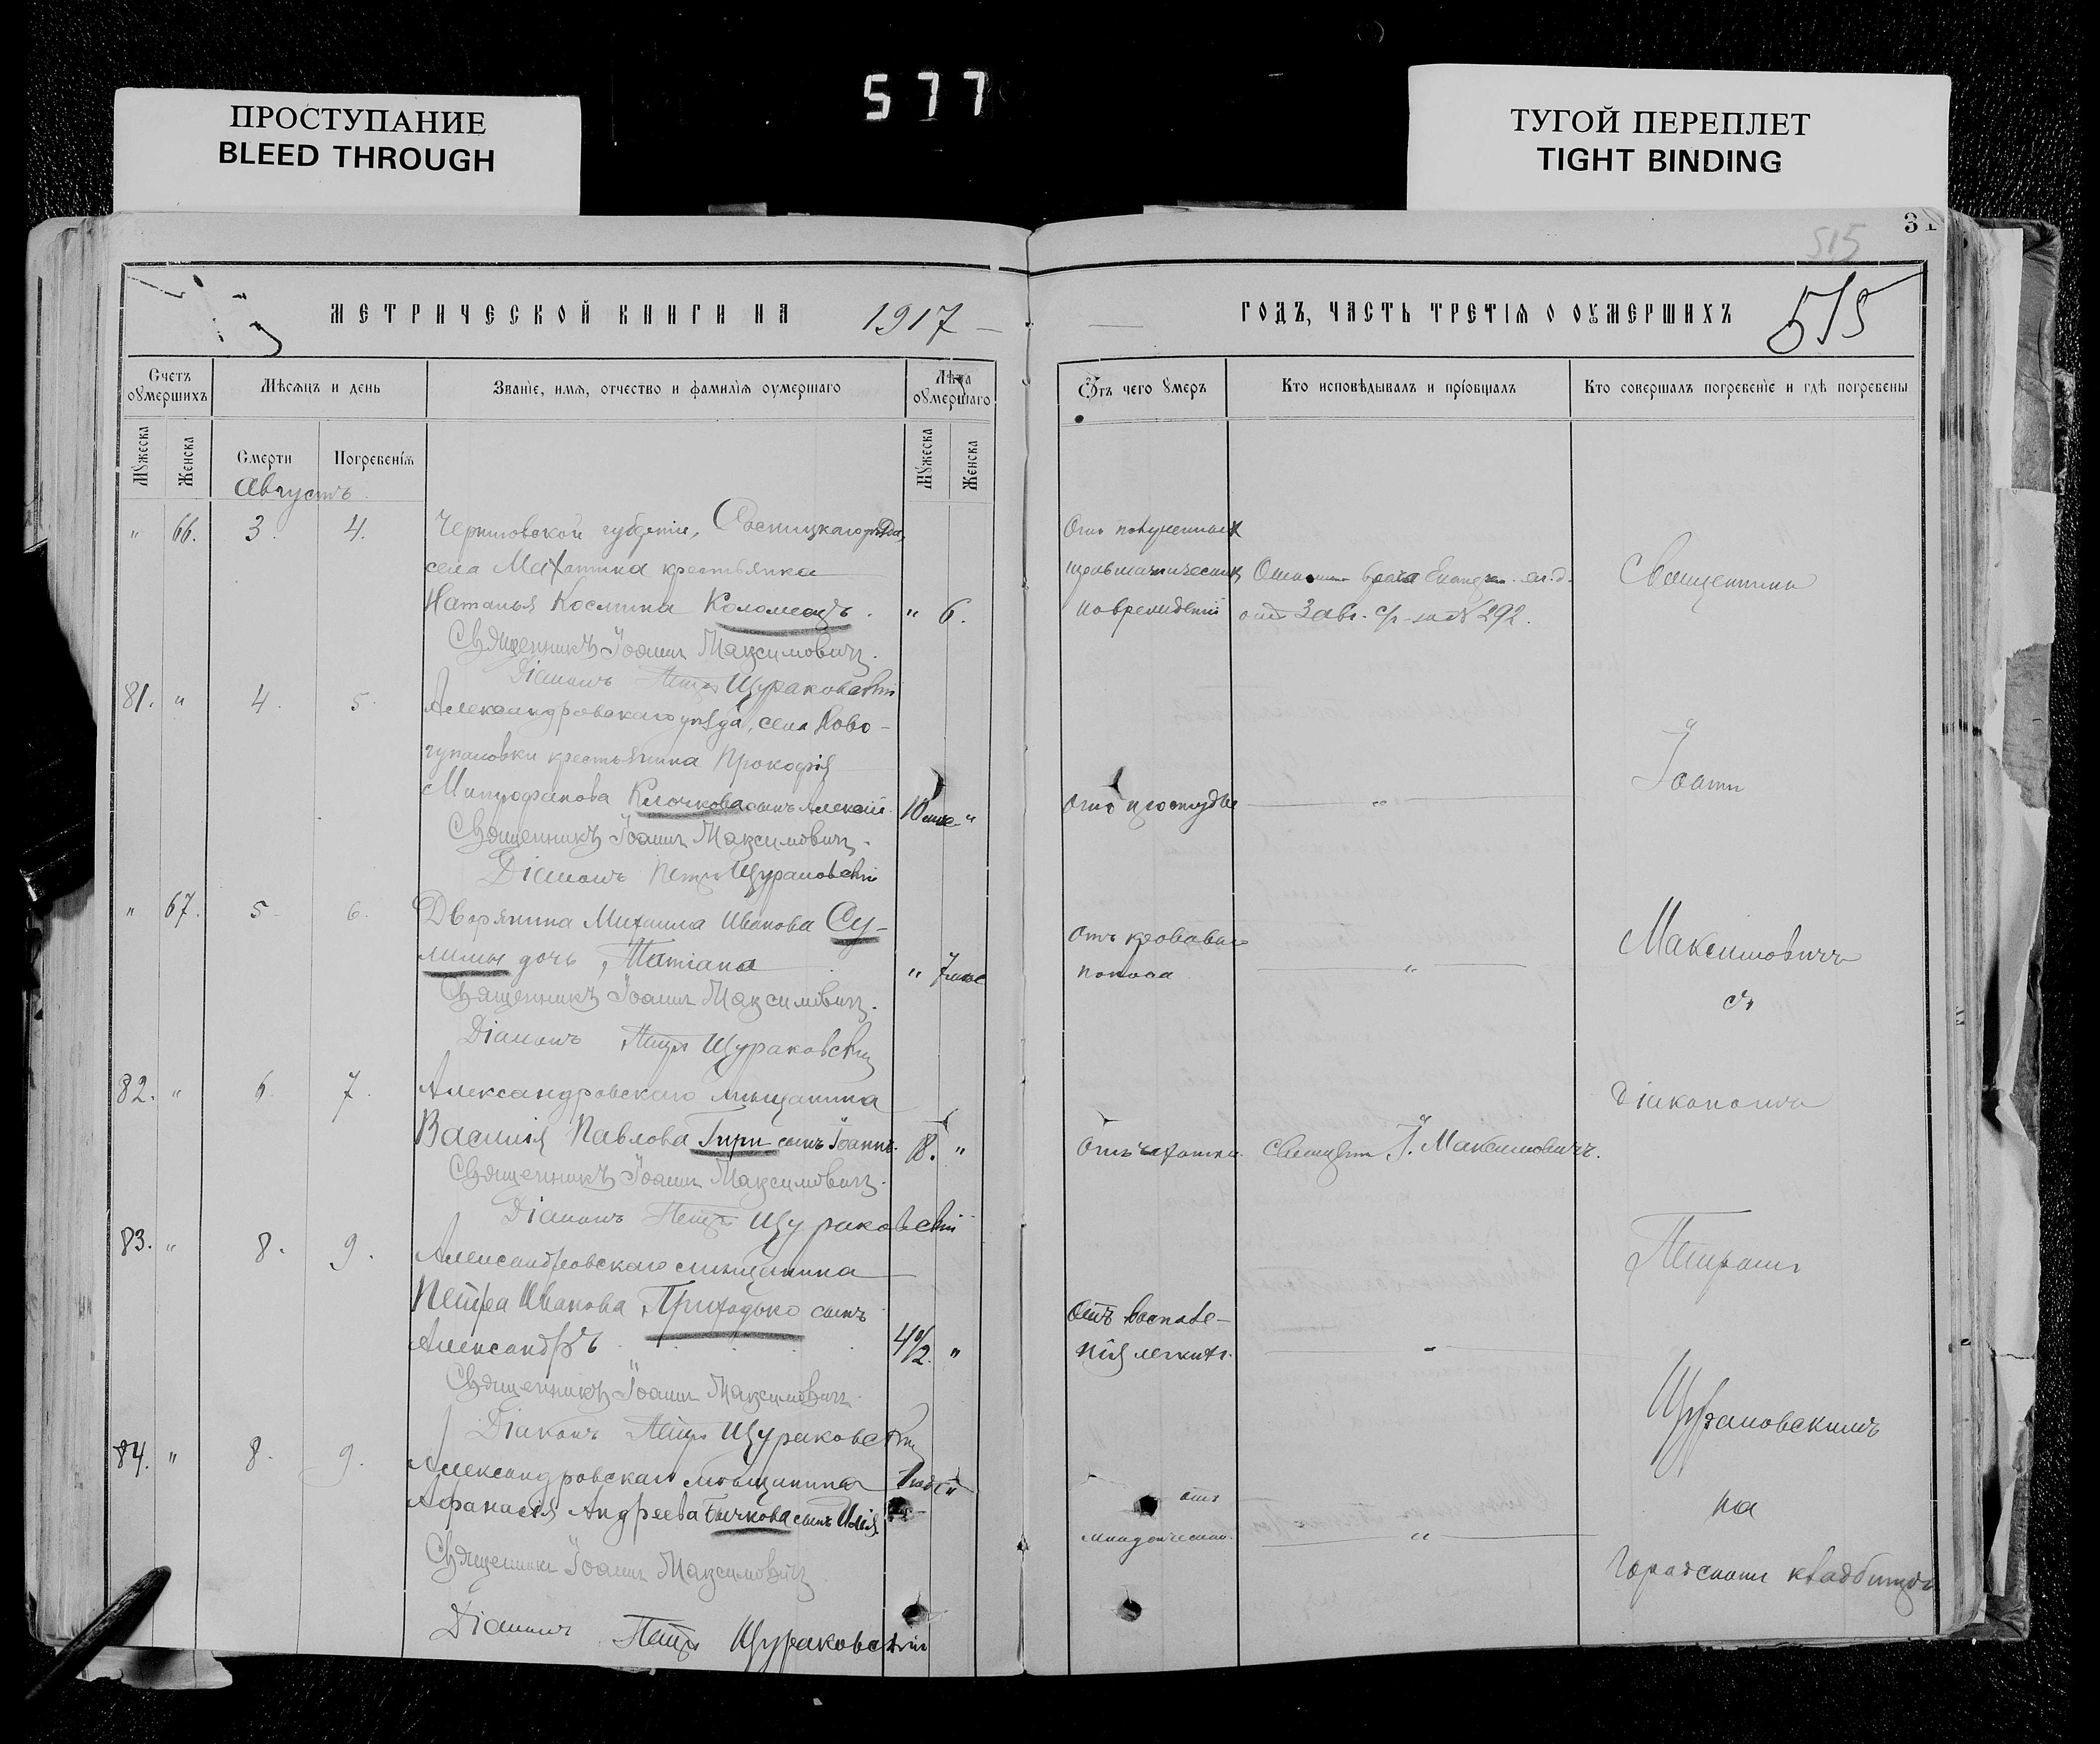 577
ПРОСТУПАНИЕ
BLEED THROUGH
ТУГОЙ ПЕРЕПЛЕТ
TIGHT BINDING
31
515
МЕТРИЧЕСКОЙ КНИГИ НА 1917
ГОДЪ, ЧАСТЬ ТРЕТІѦ О ОУМЕРШИХЪ
515
Счетъ оумершихъ
Мѣсѧцъ и день
Званіе, имѧ, отчество и фамиліѧ оумершаго
Лѣта оумершаго
Отъ чего умеръ
Кто исповѣдывалъ и пріобщалъ
Кто совершалъ погребеніе и гдѣ погребены
Мужеска
Женска
Смерти
Погребеніѧ
Мужеска
Женска
Августъ
" 66. 3. 4.
Черниговской губерніи, Сосницкаго уѣзда,
села крестьянка
Наталья Космина Коломеецъ. " 6.
Отъ полученныхъ
поврежденій
отъ 3 авг. с/г за № 292.
Священникъ Іоаннъ Максимовичъ.
Діаконъ Петръ Щураковскій
81. " 4. 5.
Александровскаго уѣзда, села Ново-
гупаловки крестьянина Прокофія
Митрофанова Клочкова сынъ Алексѣй 10 мѣс "
Отъ простуды "
Священникъ Іоаннъ Максимовичъ.
Діаконъ Петръ Щураковскій
" 67. 5 6.
Дворянина Михаила Иванова Су-
лимы дочь Татіана " 7 мѣс
Отъ кроваваго
поноса "
Священникъ Іоаннъ Максимовичъ.
Діаконъ Петръ Щураковскій
82. " 6 7.
Александровскаго мѣщанина
Василія Павлова сынъ Іоаннъ. 18. "
Отъ чахотки Священ. І. Максимовичъ.
Священникъ Іоаннъ Максимовичъ.
Діаконъ Петръ Щураковскій
83. " 8. 9.
Александровскаго мѣщанина
Петра Иванова Приходько сынъ
Александръ 4 1/2. "
Отъ воспале-
нія легкихъ. "
Священникъ Іоаннъ Максимовичъ.
Діаконъ Петръ Щураковскій
84. " 8. 9.
Александровскаго мѣщанина
Афанасія Андреева Бычкова сынъ Илія
отъ
младенческой. "
Священникъ Іоаннъ Максимовичъ
Діаконъ Петръ Щураковскій
Священникъ
Іоаннъ
Максимовичъ
съ
Діакономъ
Петромъ
Щураковскимъ
на
Городскомъ кладбищѣ